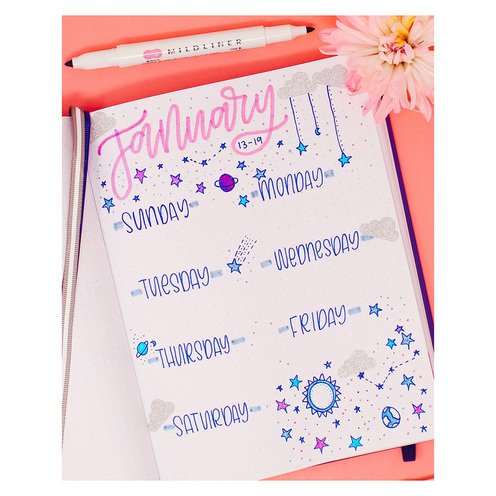 MILDLINER
January
13-19
SUNDAY
MONDAY
TUESDAY
WEDNESDAY
THURSDAY
FRIDAY
SATURDAY